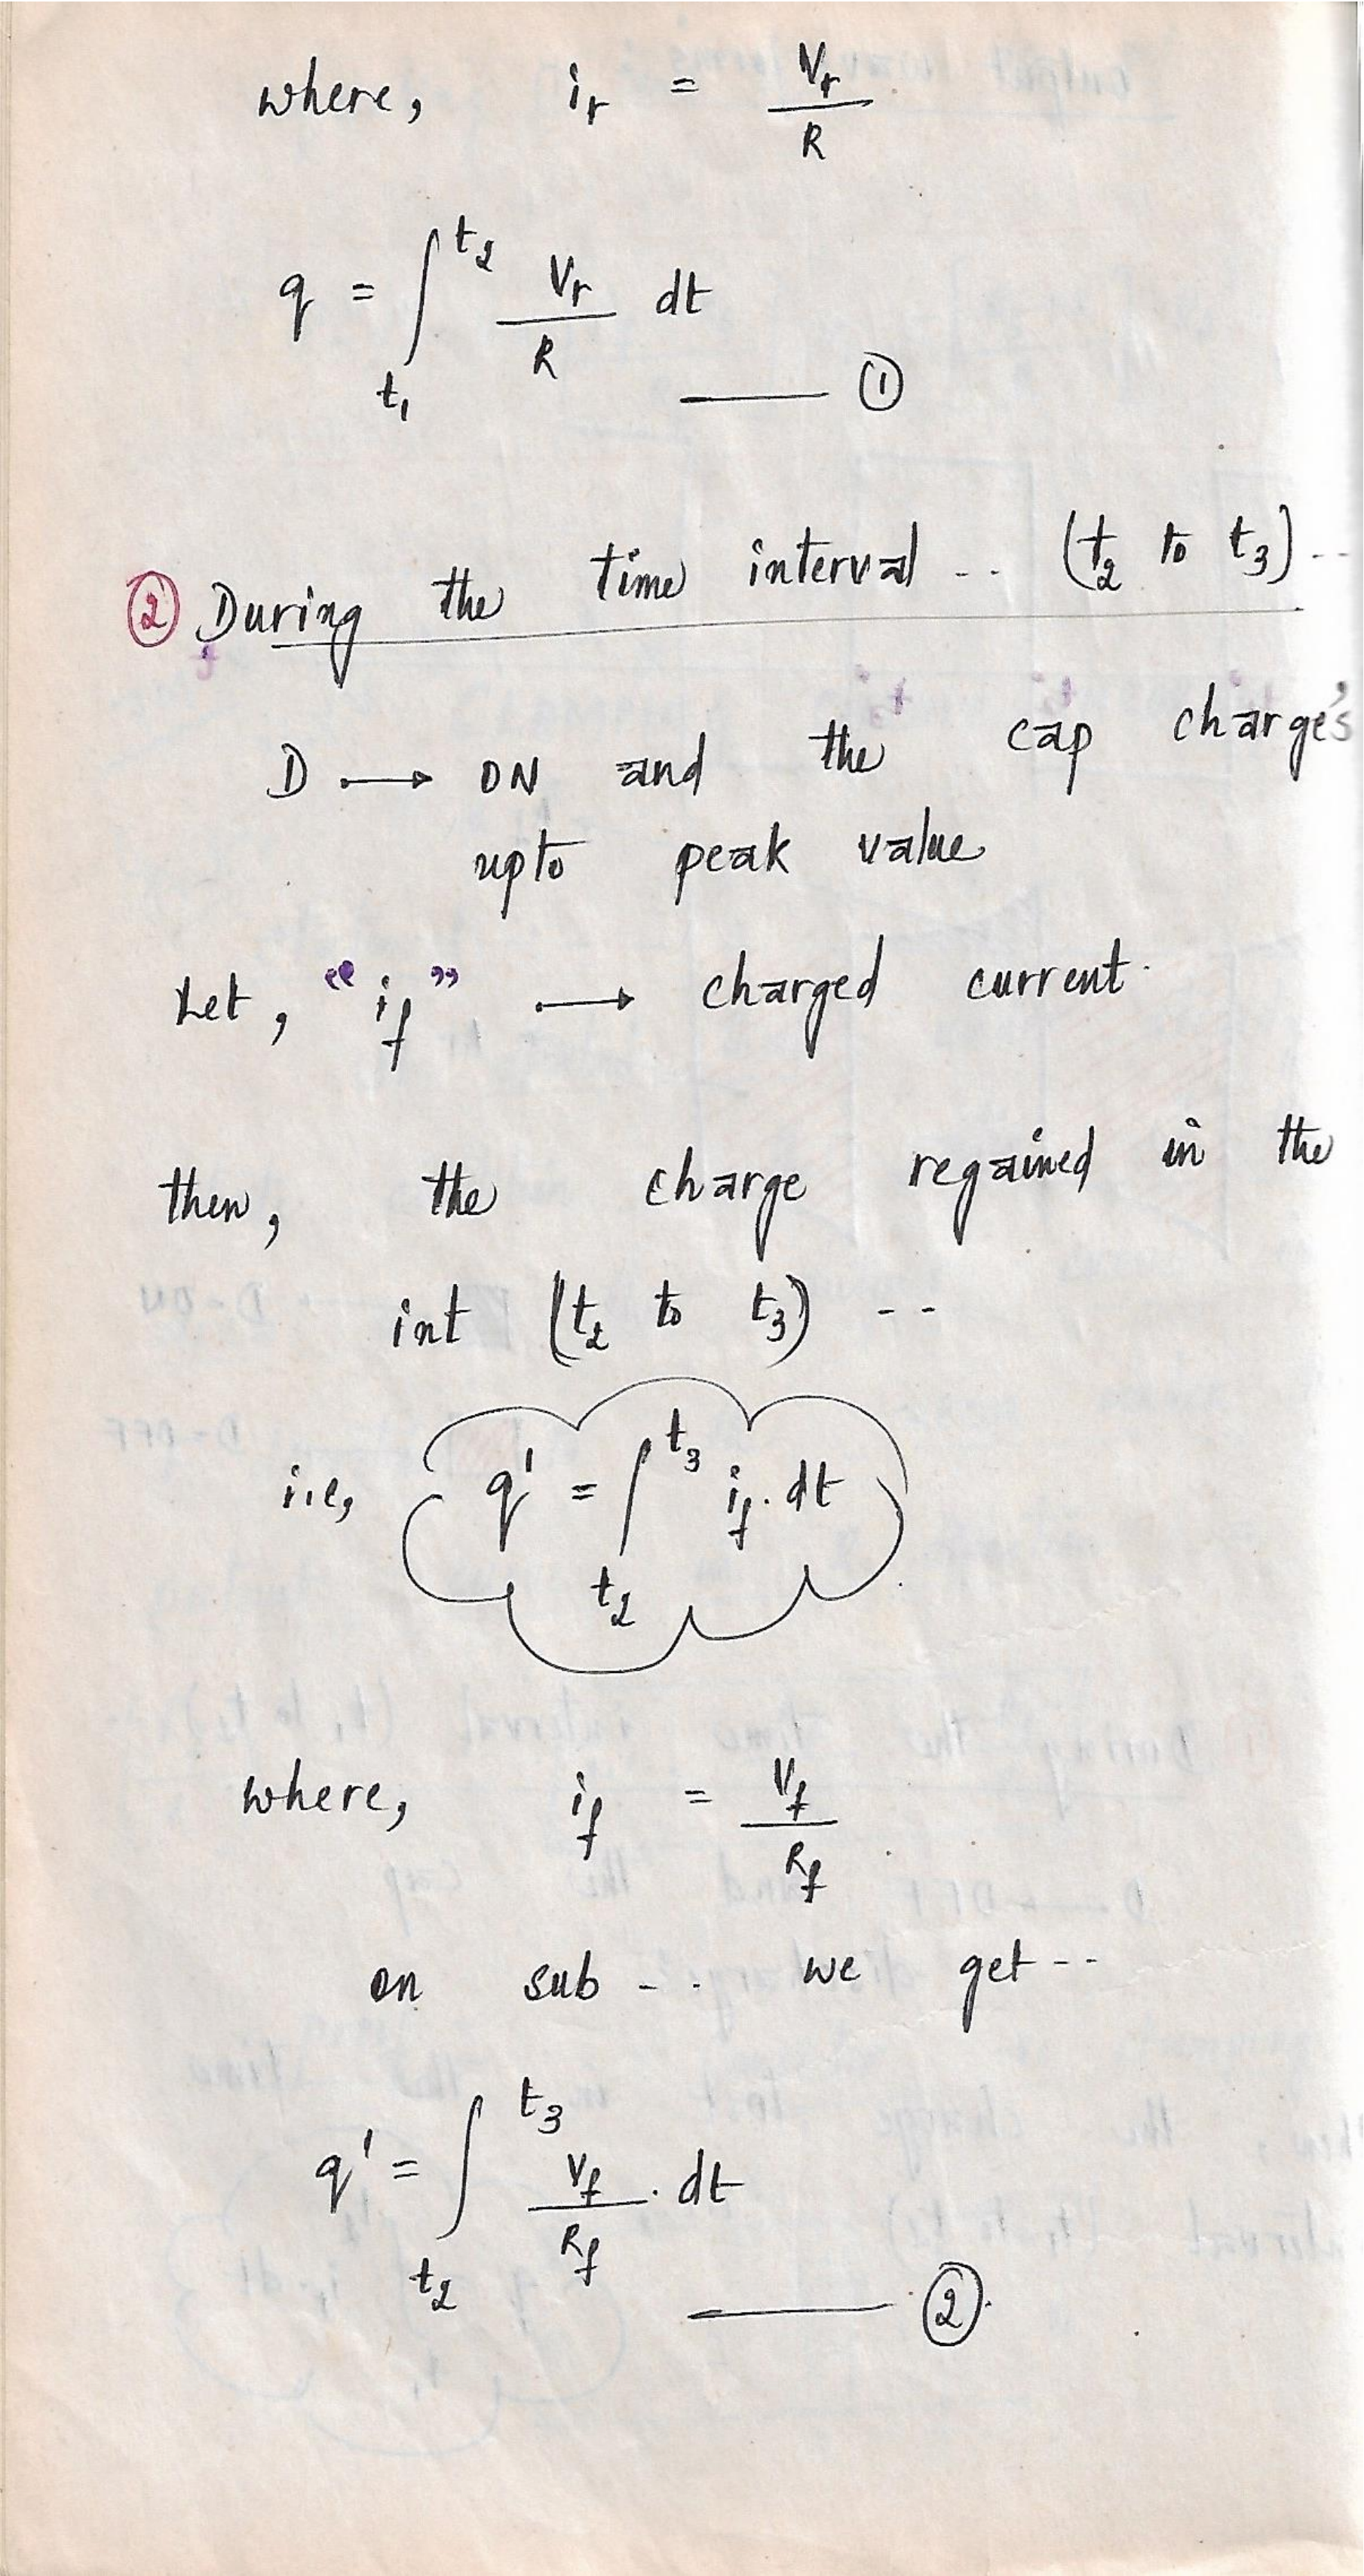 where, i_r = V_r / R
q = ∫_{t_1}^{t_2} V_r / R dt
——— ①
② During the time interval -- (t_2 to t_3) --
D → ON and the cap charge's
upto peak value
Let, "i_f" → charged current.
then, the charge regained in the
int (t_2 to t_3) --
i.e, q' = ∫_{t_2}^{t_3} i_f . dt
where, i_f = V_f / R_f
on sub -- we get --
q' = ∫_{t_2}^{t_3} V_f / R_f . dt
——— ②.